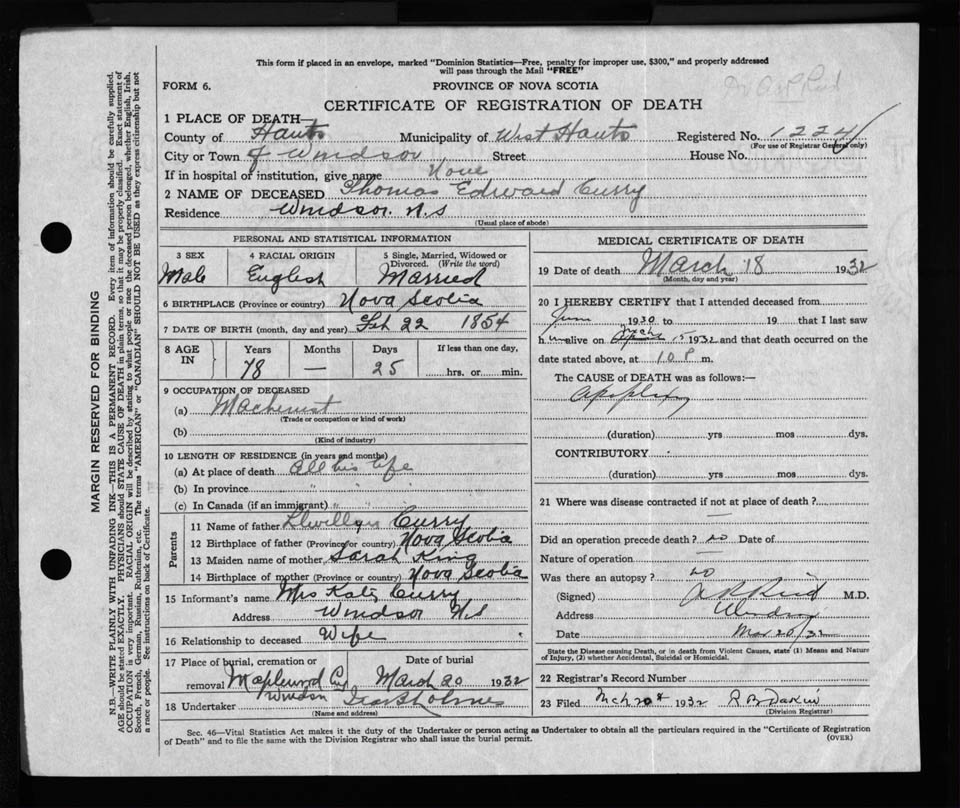 This form if placed in an envelope, marked "Dominion Statistics—Free, penalty for improper use, $300," and properly addressed
will pass through the Mail "FREE"
FORM 6.
PROVINCE OF NOVA SCOTIA
CERTIFICATE OF REGISTRATION OF DEATH
1 PLACE OF DEATH—
County of Hants Municipality of West Hants Registered No. 1224
(For use of Registrar General only)
City or Town of Windsor Street House No.
If in hospital or institution, give name None
2 NAME OF DECEASED Thomas Edward Curry
Residence Windsor. N.S
(Usual place of abode)
PERSONAL AND STATISTICAL INFORMATION
3 SEX 4 RACIAL ORIGIN 5 Single, Married, Widowed or
Divorced. (Write the word)
Male English Married
6 BIRTHPLACE (Province or country) Nova Scotia
7 DATE OF BIRTH (month, day and year) Feb 22 1854
8 AGE IN Years Months Days If less than one day,
78 — 25 hrs. or min.
9 OCCUPATION OF DECEASED
(a) Machinist
(Trade or occupation or kind of work)
(b)
(Kind of industry)
10 LENGTH OF RESIDENCE (in years and months)
(a) At place of death All his life
(b) In province " " "
(c) In Canada (if an immigrant) " " "
Parents
11 Name of father Llwillyn Curry
12 Birthplace of father (Province or country) Nova Scotia
13 Maiden name of mother Sarah King
14 Birthplace of mother (Province or country) Nova Scotia
15 Informant's name Mrs Katy Curry
Address Windsor NS
16 Relationship to deceased Wife
17 Place of burial, cremation or Date of burial
removal Maplewood Cy March 20 1932
Windsor
18 Undertaker
(Name and address)
MEDICAL CERTIFICATE OF DEATH
19 Date of death March 18 1932
(Month, day and year)
20 I HEREBY CERTIFY that I attended deceased from
June 1930 to 19 that I last saw
him alive on Mch 15 1932 and that death occurred on the
date stated above, at 10 P m.
The CAUSE of DEATH was as follows:—
Apoplexy
(duration) yrs mos dys.
CONTRIBUTORY
(duration) yrs. mos. dys.
21 Where was disease contracted if not at place of death?
—
Did an operation precede death? no Date of
Nature of operation —
Was there an autopsy? no
(Signed) A R Reid M.D.
Address Windsor
Date Mar 20/32
State the Disease causing Death, or in death from Violent Causes, state (1) Means and Nature
of Injury, (2) whether Accidental, Suicidal or Homicidal.
22 Registrar's Record Number
23 Filed Mch 20th 1932 R B Dakin
(Division Registrar)
Sec. 46—Vital Statistics Act makes it the duty of the Undertaker or person acting as Undertaker to obtain all the particulars required in the "Certificate of Registration
of Death" and to file the same with the Division Registrar who shall issue the burial permit.
(OVER)
MARGIN RESERVED FOR BINDING
N.B.—WRITE PLAINLY WITH UNFADING INK—THIS IS A PERMANENT RECORD. Every item of information should be carefully supplied.
AGE should be stated EXACTLY. PHYSICIANS should STATE CAUSE OF DEATH in plain terms, so that it may be properly classified. Exact statement of
OCCUPATION is very important. RACIAL ORIGIN will be described by stating to what people or race the deceased person belonged, whether English, Irish,
Scotch, French, German, Russian, Ruthenian, etc. The terms "AMERICAN" or "CANADIAN" SHOULD NOT BE USED as they express citizenship but not
a race or people. See instructions on back of Certificate.